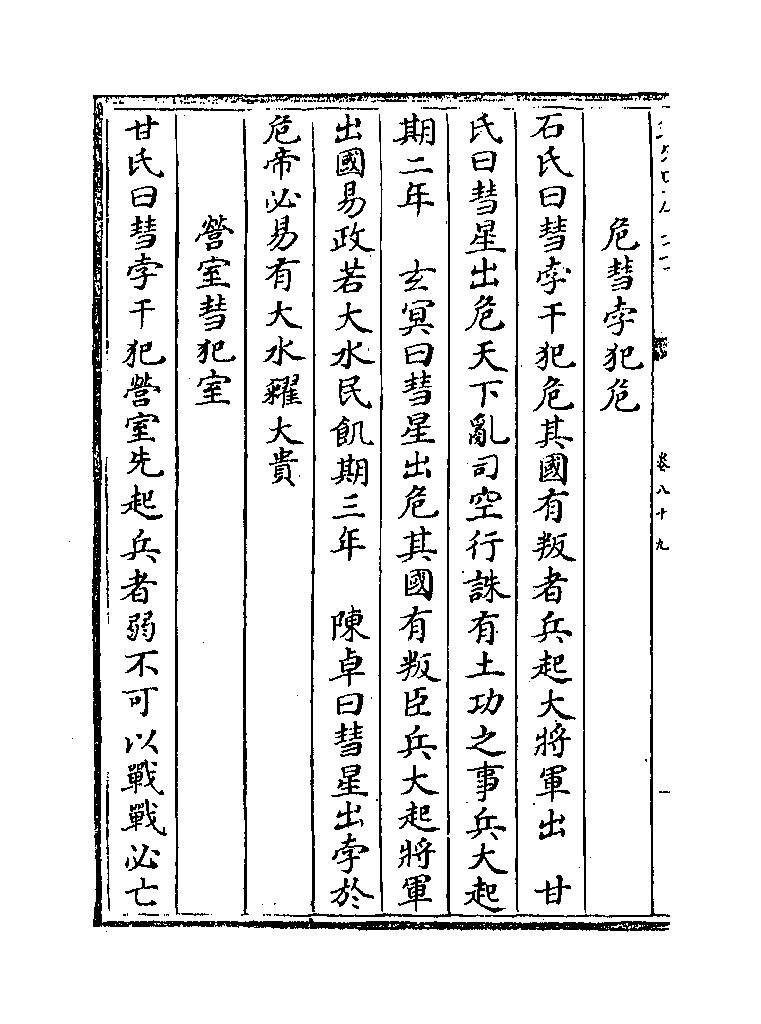 卷八十九
危彗孛犯危
石氏曰彗孛干犯危其國有叛者兵起大將軍出　甘
氏曰彗星出危天下亂司空行誅有土功之事兵大起
期二年　玄冥曰彗星出危其國有叛臣兵大起將軍
出國易政若大水民飢期三年　陳卓曰彗星出孛於
危帝必易有大水糴大貴
營室彗犯室
甘氏曰彗孛干犯營室先起兵者弱不可以戰戰必亡